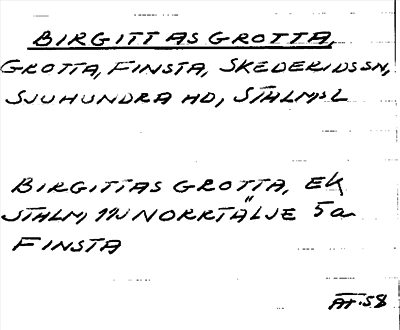 BIRGITTAS GROTTA,
GROTTA, FINSTA, SKEDERIDS SN,
SJUHUNDRA HD, STHLM,S L
BIRGITTAS GROTTA, EK
STHLM, 11J NORRTÄLJE 5a
FINSTA
ÄT-58